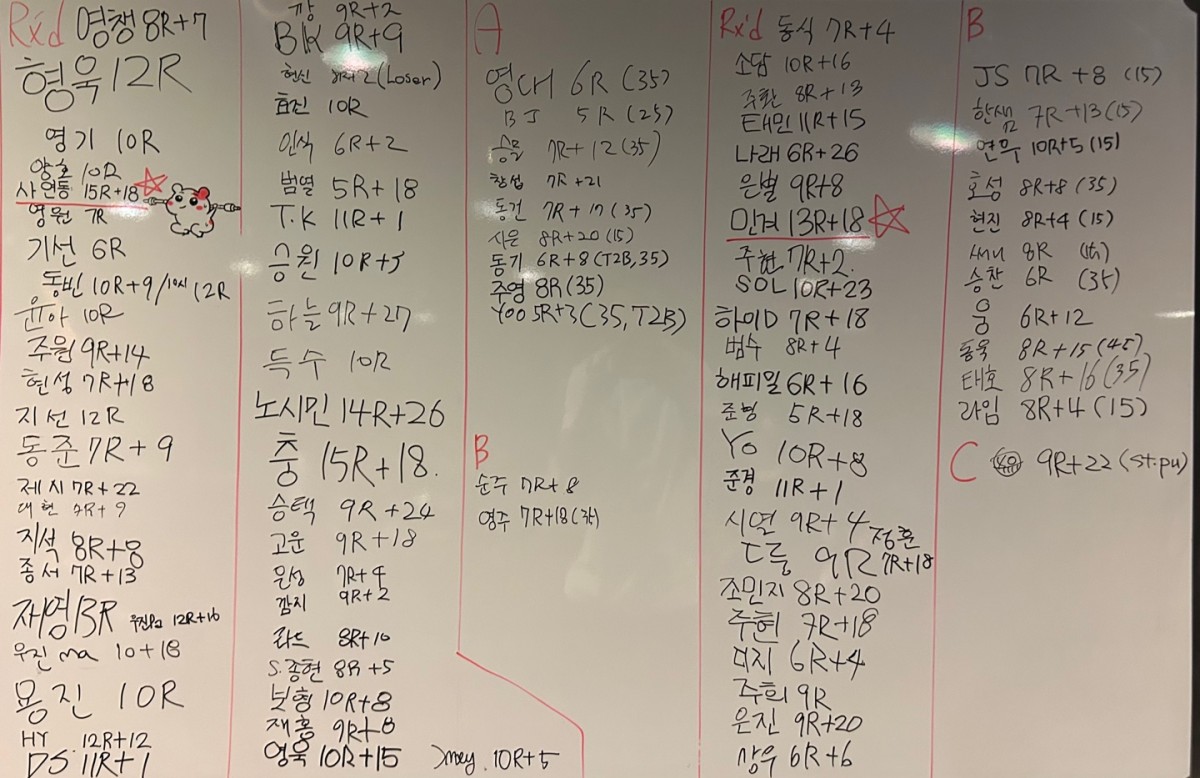 Rx'd 영챙 8R+7
형욱 12R
영기 10R
양호 10R
사연동 15R+18
영원 7R
기선 6R
동빈 10R+9/ 12R
윤아 10R
주원 9R+14
현성 7R+18
지선 12R
동준 7R+9
제시 7R+22
대현 9R+9
지석 8R+8
종서 7R+13
재영 13R 12R+16
우진 ma 10+18
용진 10R
HY 12R+12
DS 11R+1
깡 9R+2
BK 9R+9
현신 (Loser)
효진 10R
인식 6R+2
범열 5R+18
T.K 11R+1
승원 10R+5
하늘 9R+27
득수 10R
노시민 14R+26
충 15R+18.
승택 9R+24
고운 9R+18
윤성 7R+9
깜지 9R+2
라드 8R+10
S.종현 8R+5
보형 10R+8
재홍 9R+8
영욱 10R+15
Jmey. 10R+5
A
영대 6R (35)
BJ 5R (25)
승물 7R+12 (35)
찬섭 7R+21
동건 7R+17 (35)
시은 8R+20 (15)
동기 6R+8 (T2B, 35)
주영 8R (35)
Yoo 5R+3 (35, T2B)
B
순주 7R+8
영주 7R+18
Rx'd 동식 7R+4
소담 10R+16
주환 8R+13
태민 11R+15
나래 6R+26
은별 9R+8
민겨 13R+18
주현 7R+2.
SOL 10R+23
하이D 7R+18
범수 8R+4
해피밀 6R+16
준형 5R+18
Yo 10R+8
준경 11R+1
시열 9R+4
ㄷ릉 9R 정훈 7R+18
조민지 8R+20
주현 7R+18
미지 6R+4
주희 9R
은진 9R+20
상우 6R+6
B
JS 7R+8 (15)
한샘 7R+13 (15)
연무 10R+5 (15)
호성 8R+8 (35)
현진 8R+4 (15)
써니 8R
승찬 6R (35)
웅 6R+12
동욱 8R+15 (45)
태호 8R+16 (35)
라임 8R+4 (15)
C 9R+22 (st.pu)